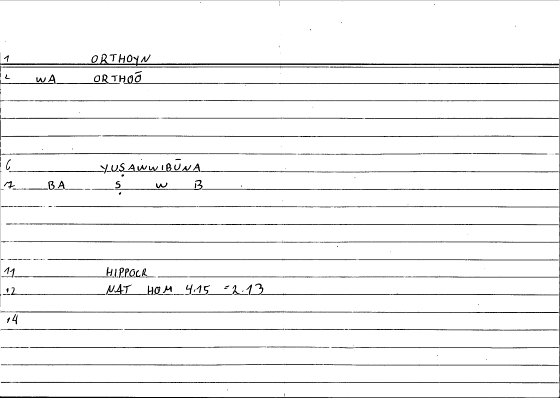 1 ORTHOYN
2 WA ORTHOŌ
6 YUṢAWWIBŪNA
7 BA Ṣ W B
11 HIPPOCR
12 NAT HOM 4.15 = 2.13
14